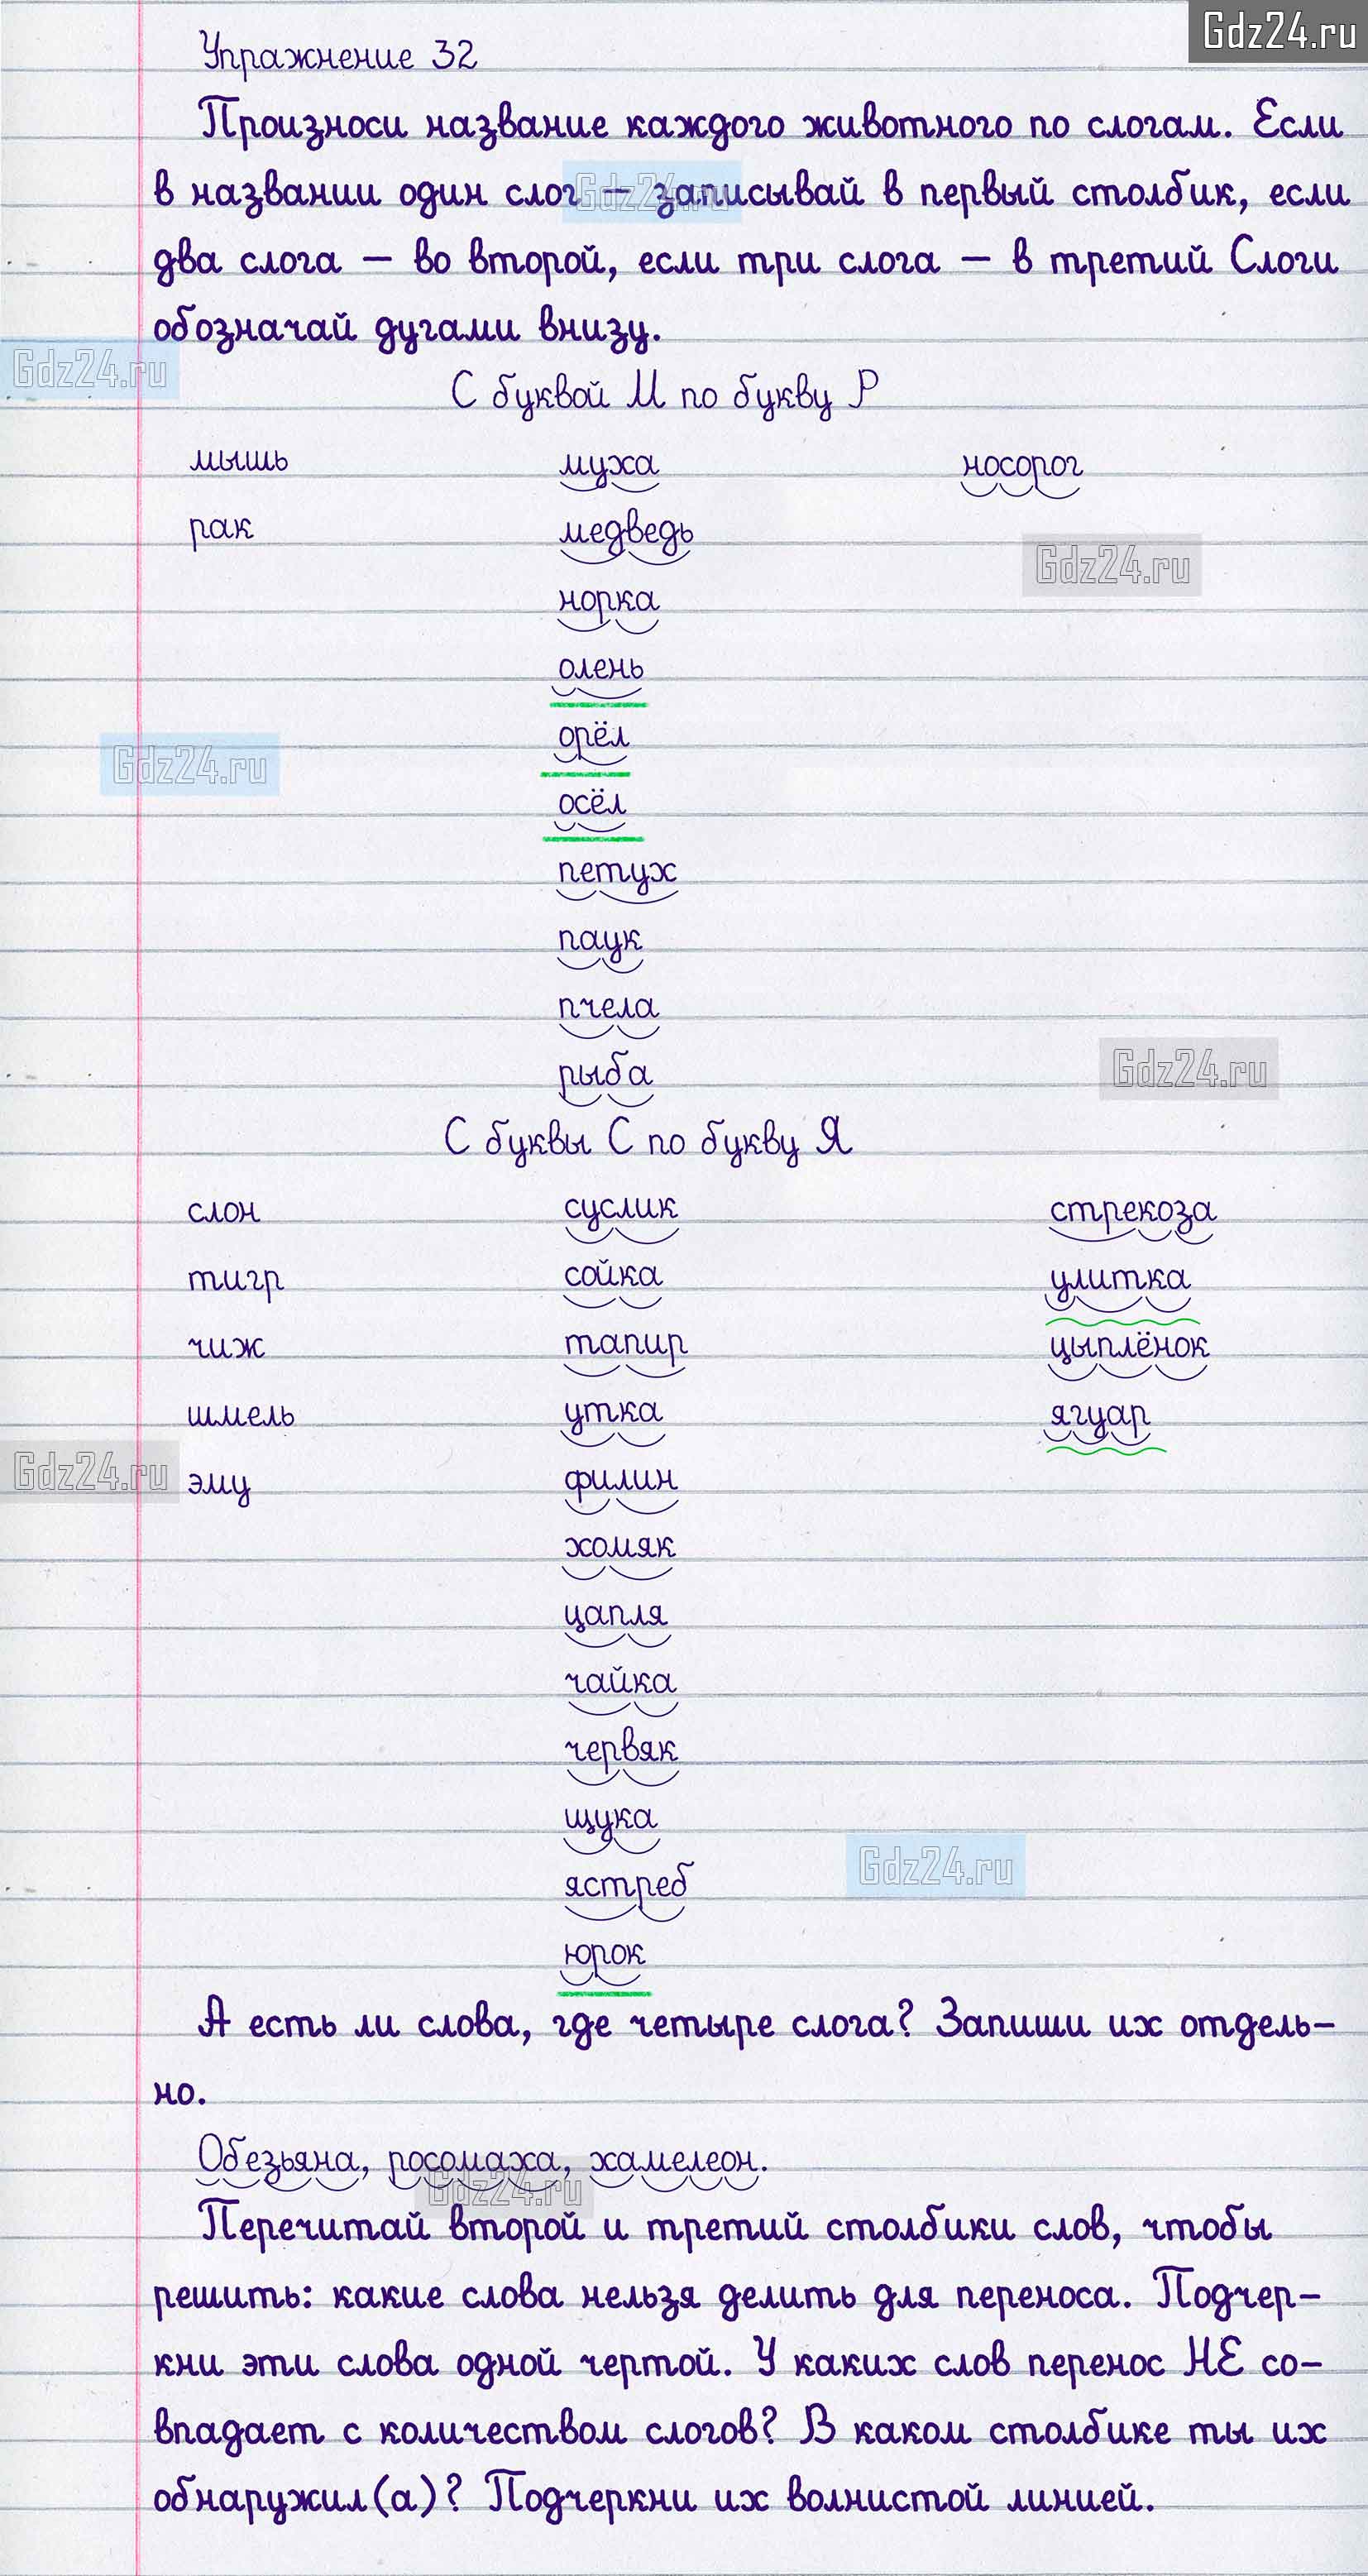 Gdz24.ru
Упражнение 32
Произноси название каждого животного по слогам. Если
в названии один слог – записывай в первый столбик, если
Gdz24.ru
два слога – во второй, если три слога – в третий Слоги
обозначай дугами внизу.
Gdz24.ru
С буквой М по букву Р
мышь муха носорог
рак медведь
Gdz24.ru
норка
олень
орёл
Gdz24.ru
осёл
петух
паук
пчела
рыба
Gdz24.ru
С буквы С по букву Я
слон суслик стрекоза
тигр сойка улитка
чиж тапир цыплёнок
шмель утка ягуар
Gdz24.ru
эму филин
хомяк
цапля
чайка
червяк
щука
Gdz24.ru
ястреб
юрок
А есть ли слова, где четыре слога? Запиши их отдель-
но.
Обезьяна, росомаха, хамелеон.
Gdz24.ru
Перечитай второй и третий столбики слов, чтобы
решить: какие слова нельзя делить для переноса. Подчер-
кни эти слова одной чертой. У каких слов перенос НЕ со-
впадает с количеством слогов? В каком столбике ты их
обнаружил(а)? Подчеркни их волнистой линией.